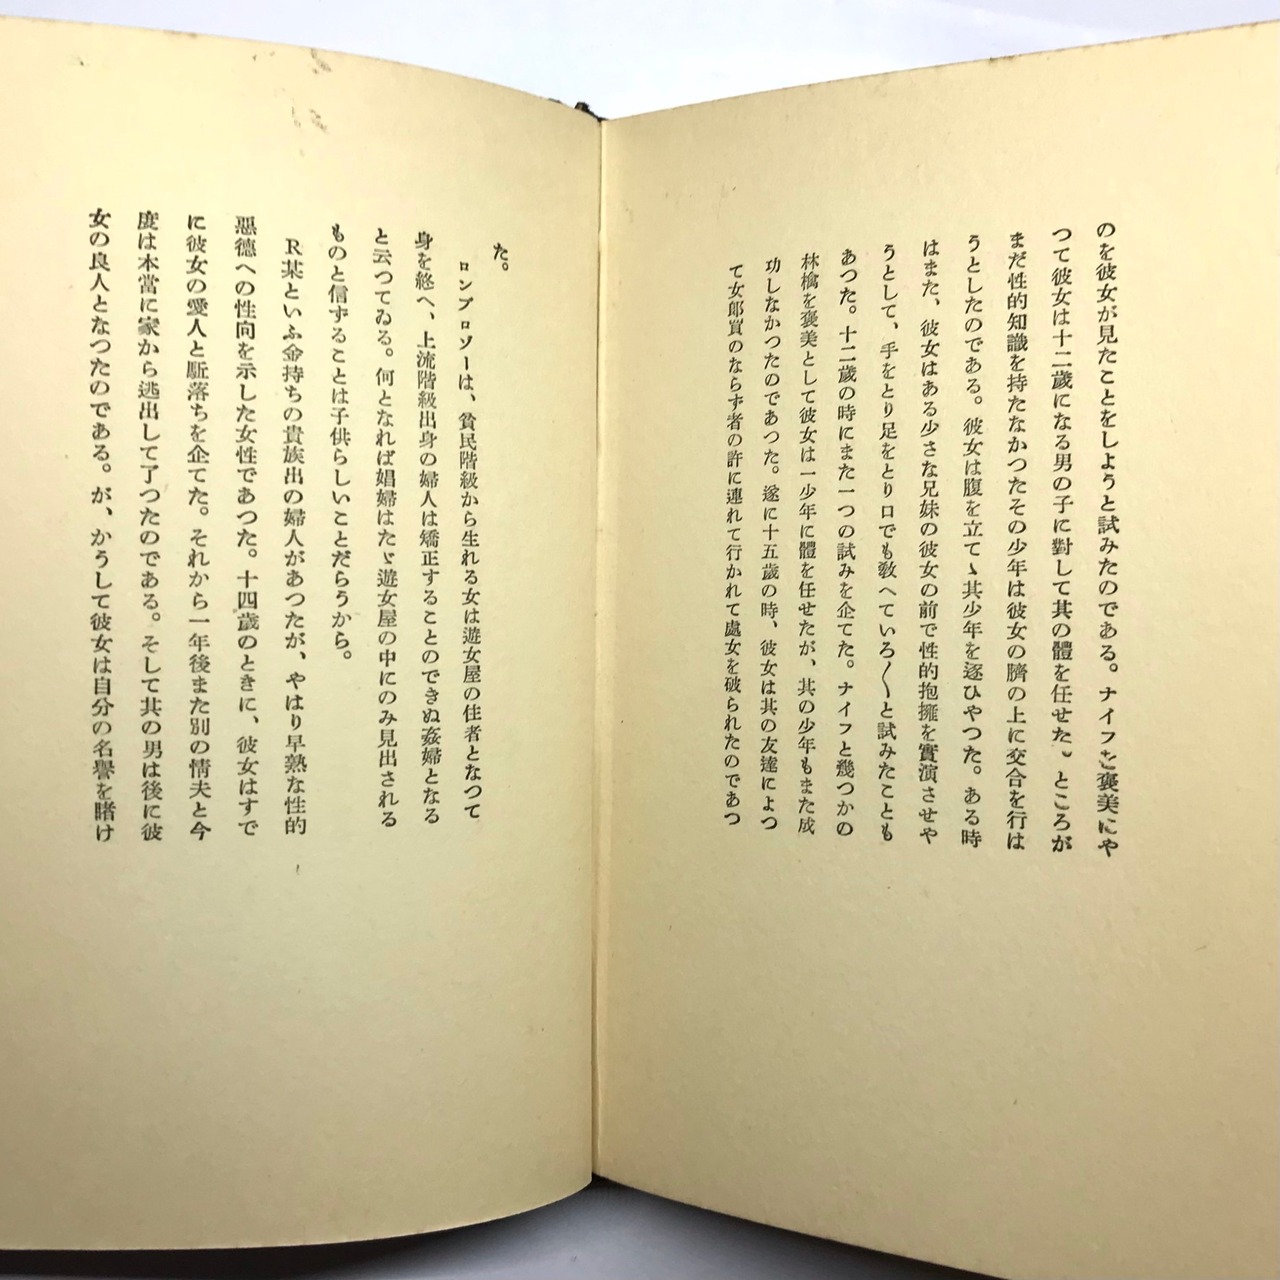 のを彼女が見たことをしようと試みたのである。ナイフを褒美にや
つて彼女は十二歳になる男の子に對して其の體を任せた。ところが
まだ性的知識を持たなかつたその少年は彼女の臍の上に交合を行は
うとしたのである。彼女は腹を立てゝ其少年を逐ひやつた。ある時
はまた、彼女はある少さな兄妹の彼女の前で性的抱擁を實演させや
うとして、手をとり足をとり口でも敎へていろ〱と試みたことも
あつた。十二歳の時にまた一つの試みを企てた。ナイフと幾つかの
林檎を褒美として彼女は一少年に體を任せたが、其の少年もまた成
功しなかつたのであつた。遂に十五歳の時、彼女は其の友達によつ
て女郎買のならず者の許に連れて行かれて處女を破られたのであつ
た。
ロンブロゾーは、貧民階級から生れる女は遊女屋の住者となつて
身を終へ、上流階級出身の婦人は矯正することのできぬ姦婦となる
と云つてゐる。何となれば娼婦はたゞ遊女屋の中にのみ見出される
ものと信ずることは子供らしいことだらうから。
R某といふ金持ちの貴族出の婦人があつたが、やはり早熟な性的
惡德への性向を示した女性であつた。十四歳のときに、彼女はすで
に彼女の愛人と駈落ちを企てた。それから一年後また別の情夫と今
度は本當に家から逃出して了つたのである。そして其の男は後に彼
女の良人となつたのである。が、かうして彼女は自分の名譽を賭け